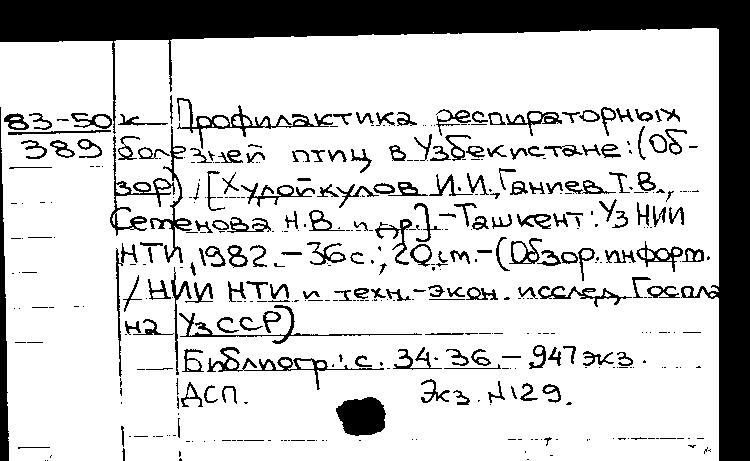 83-50к Профилактика респираторных
389 болезней птиц в Узбекистане: (Об-
зор) / [Худойкулов И.И., Ганиев Т.В.,
Семенова Н.В. и др.]. - Ташкент: УзНИИ
НТИ, 1982. - 36 с.; 20 см. - (Обзор. информ.
/ НИИ НТИ и техн.-экон. исслед. Госпла
на УзССР)
Библиогр.: с. 34-36. - 947 экз.
ДСП. Экз. №129.